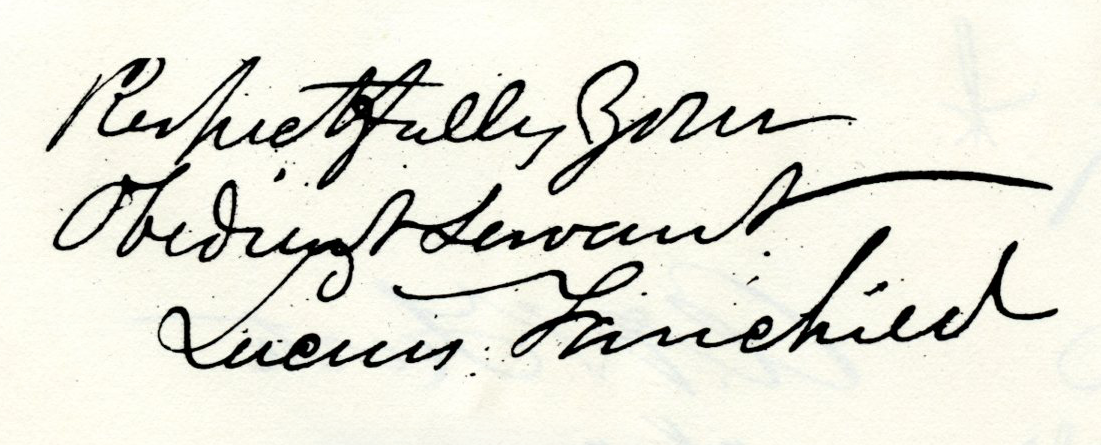 Respectfully Your
Obedient Servant
Lucius Fairchild